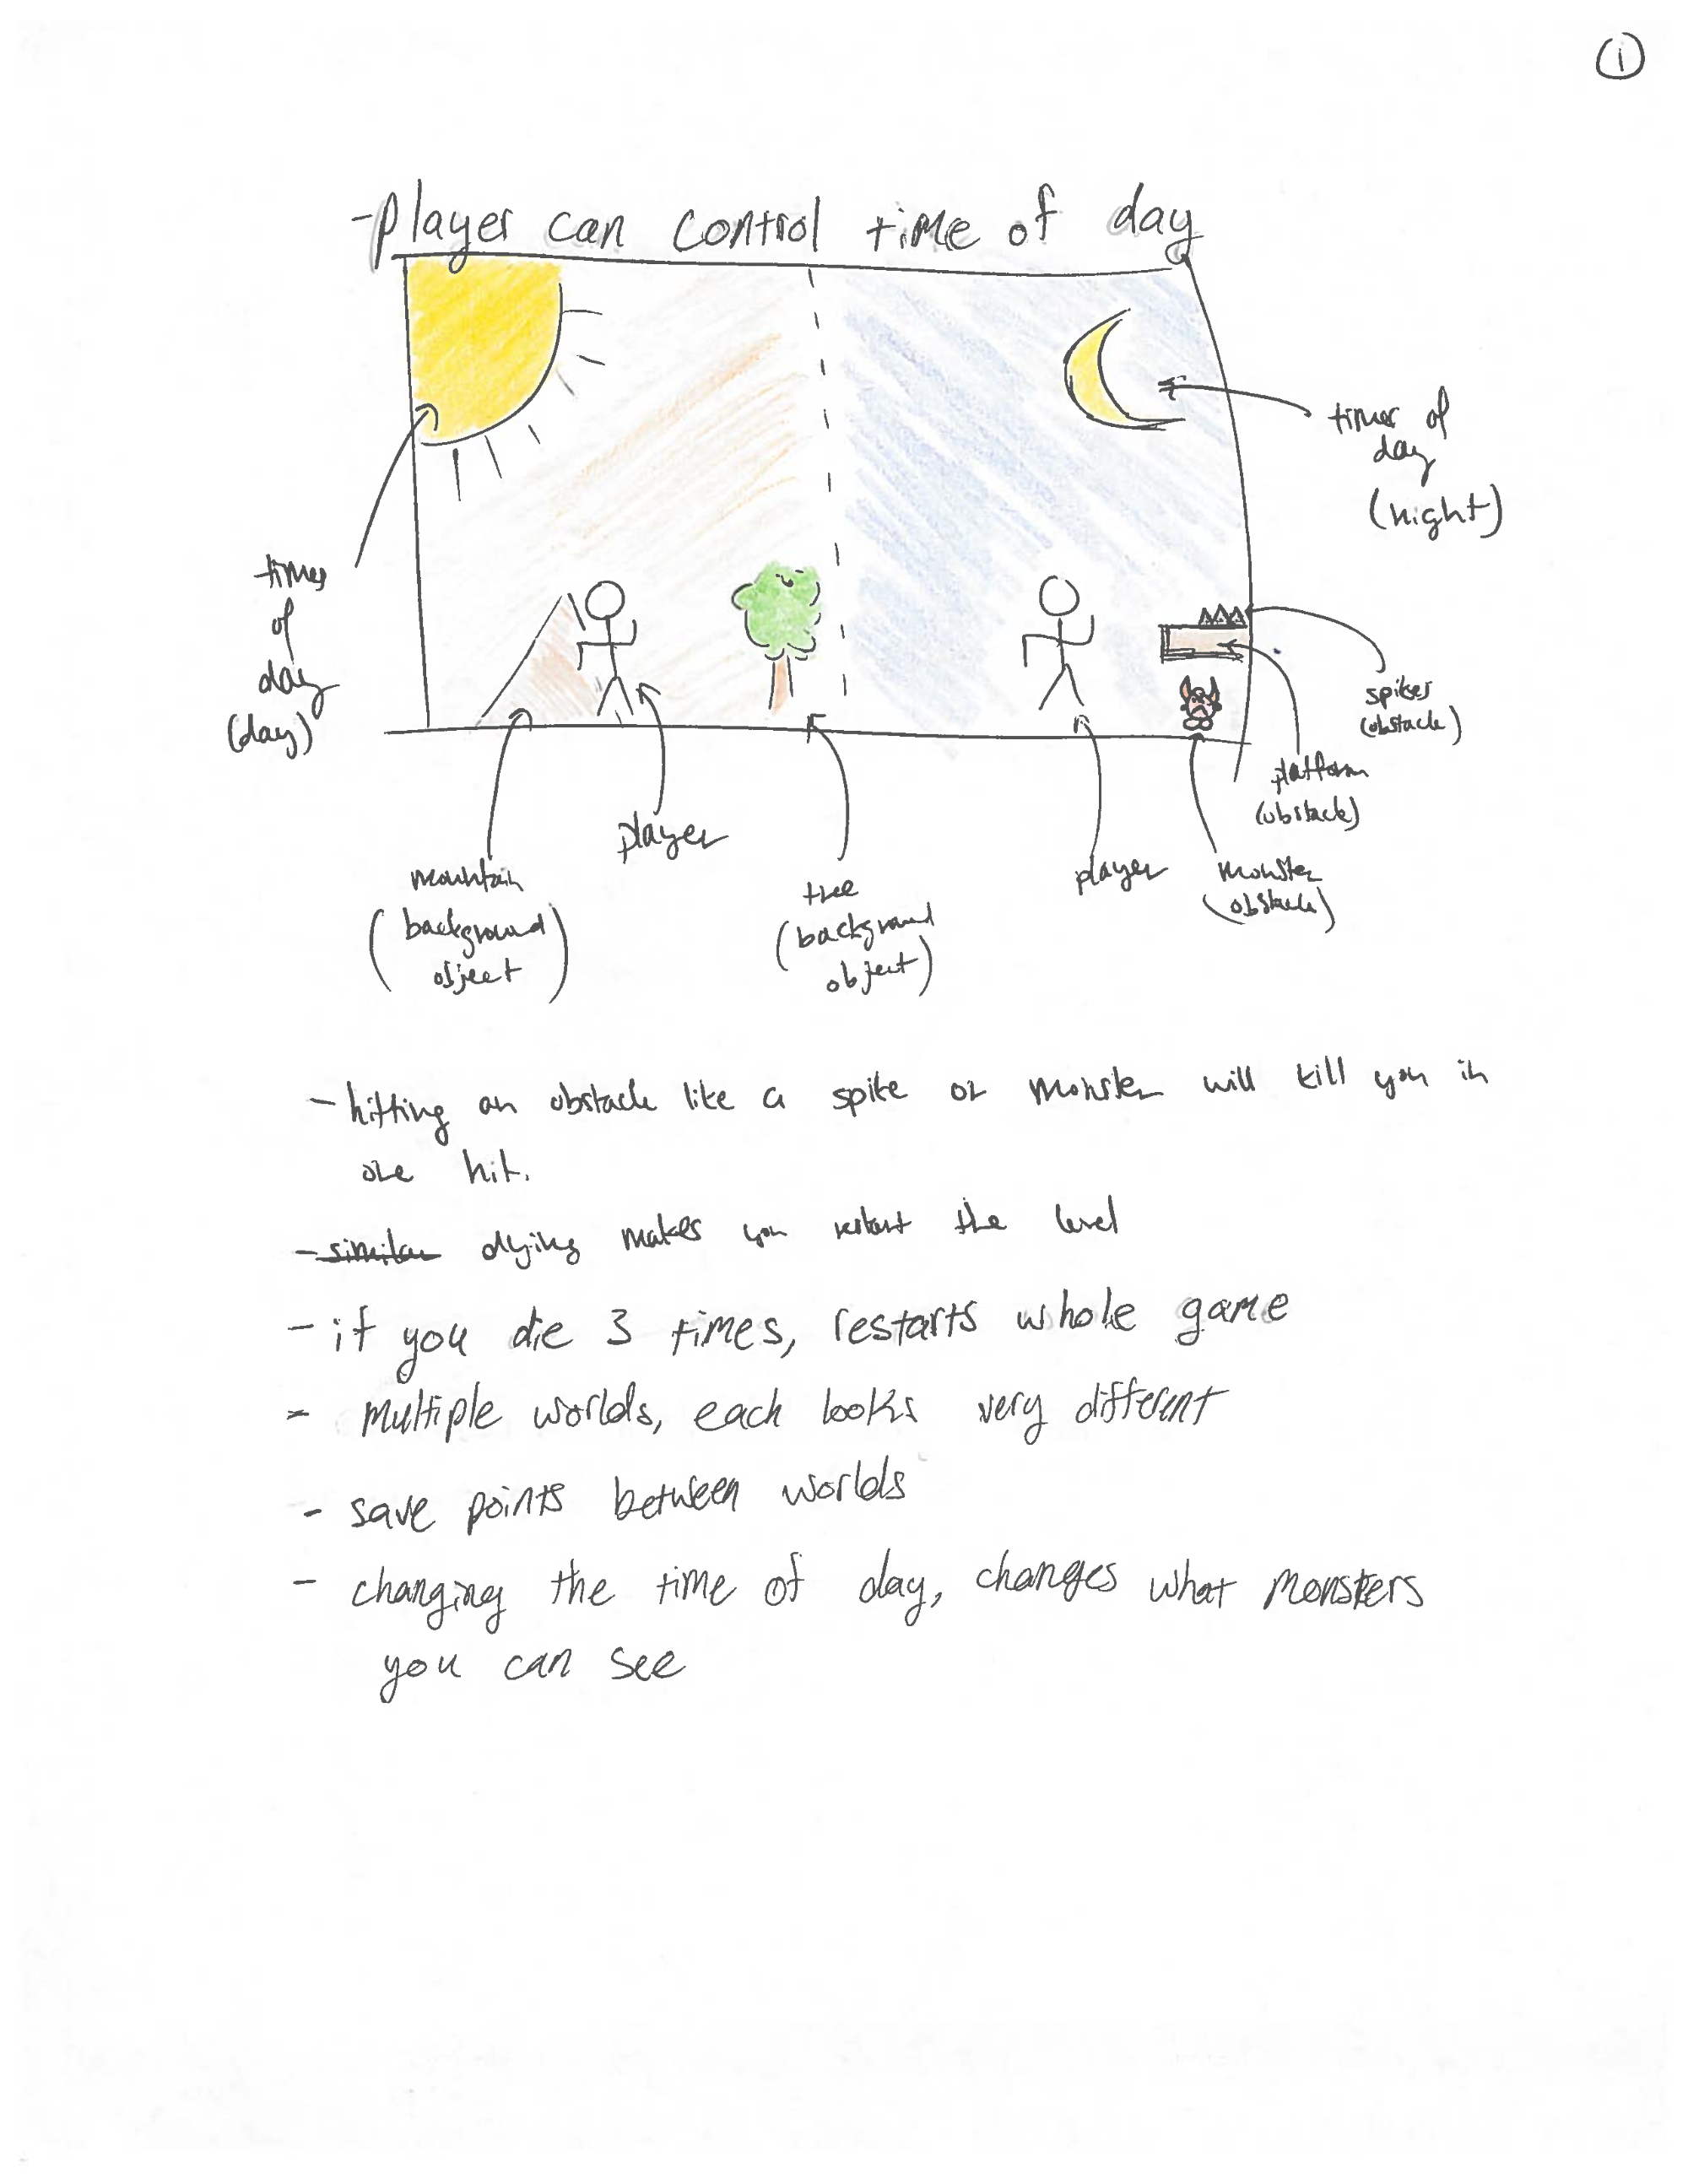 1
-player can control time of day
times of
day
(night)
times
of
day
(day)
spikes
(obstacle)
platform
(obstacle)
player
mountain
(background
object)
tree
(background
object)
player
monster
(obstacle)
- hitting an obstacle like a spike or monster will kill you in
one hit.
- similar dying makes you restart the level
- if you die 3 times, restarts whole game
- multiple worlds, each looks very different
- save points between worlds
- changing the time of day, changes what monsters
you can see